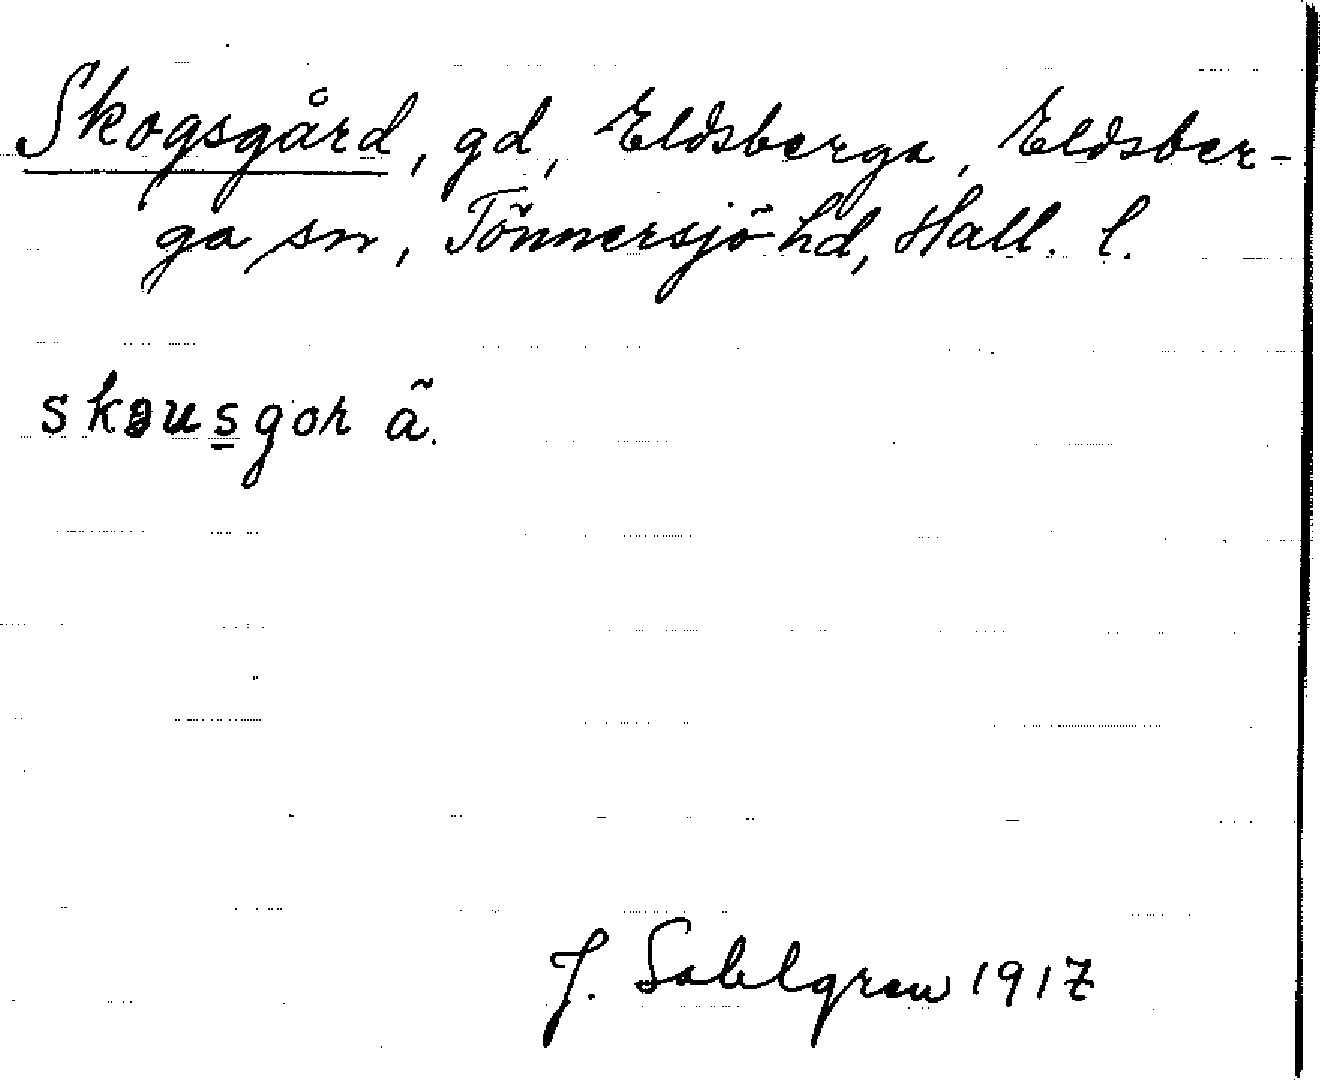 Skogsgård, gd, Eldsberga, Eldsber-
ga sn, Tönnersjö hd, Hall. l.
skəusgor ã.
J. Sahlgren 1917